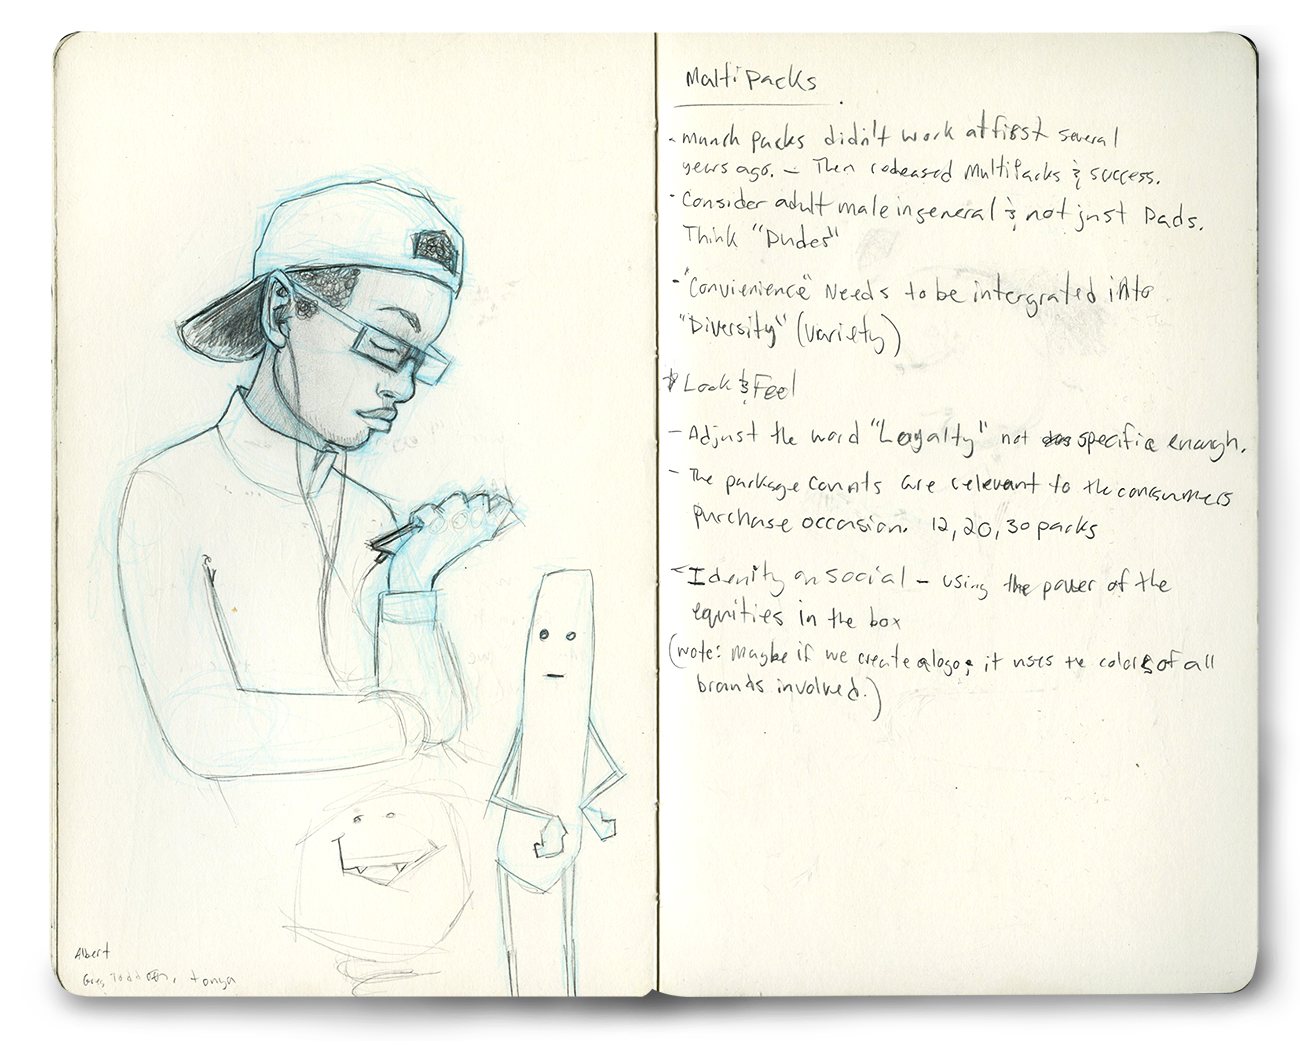 Multipacks
- munch packs didn't work at first several
years ago. - Then rebeased Multipacks & success.
- Consider adult male in general & not just Dads.
Think "Dudes"
- "Convienience" Needs to be intergrated into
"Diversity" (variety)
Look & Feel
- Adjust the word "Loyalty" not specific enough.
- The package counts are relevant to the consumers
purchase occasion. 12, 20, 30 packs
- Idenity on social - using the power of the
equities in the box
(note: Maybe if we create a logo, it uses the colors of all
brands involved.)
Albert
Greg, Todd, tonya